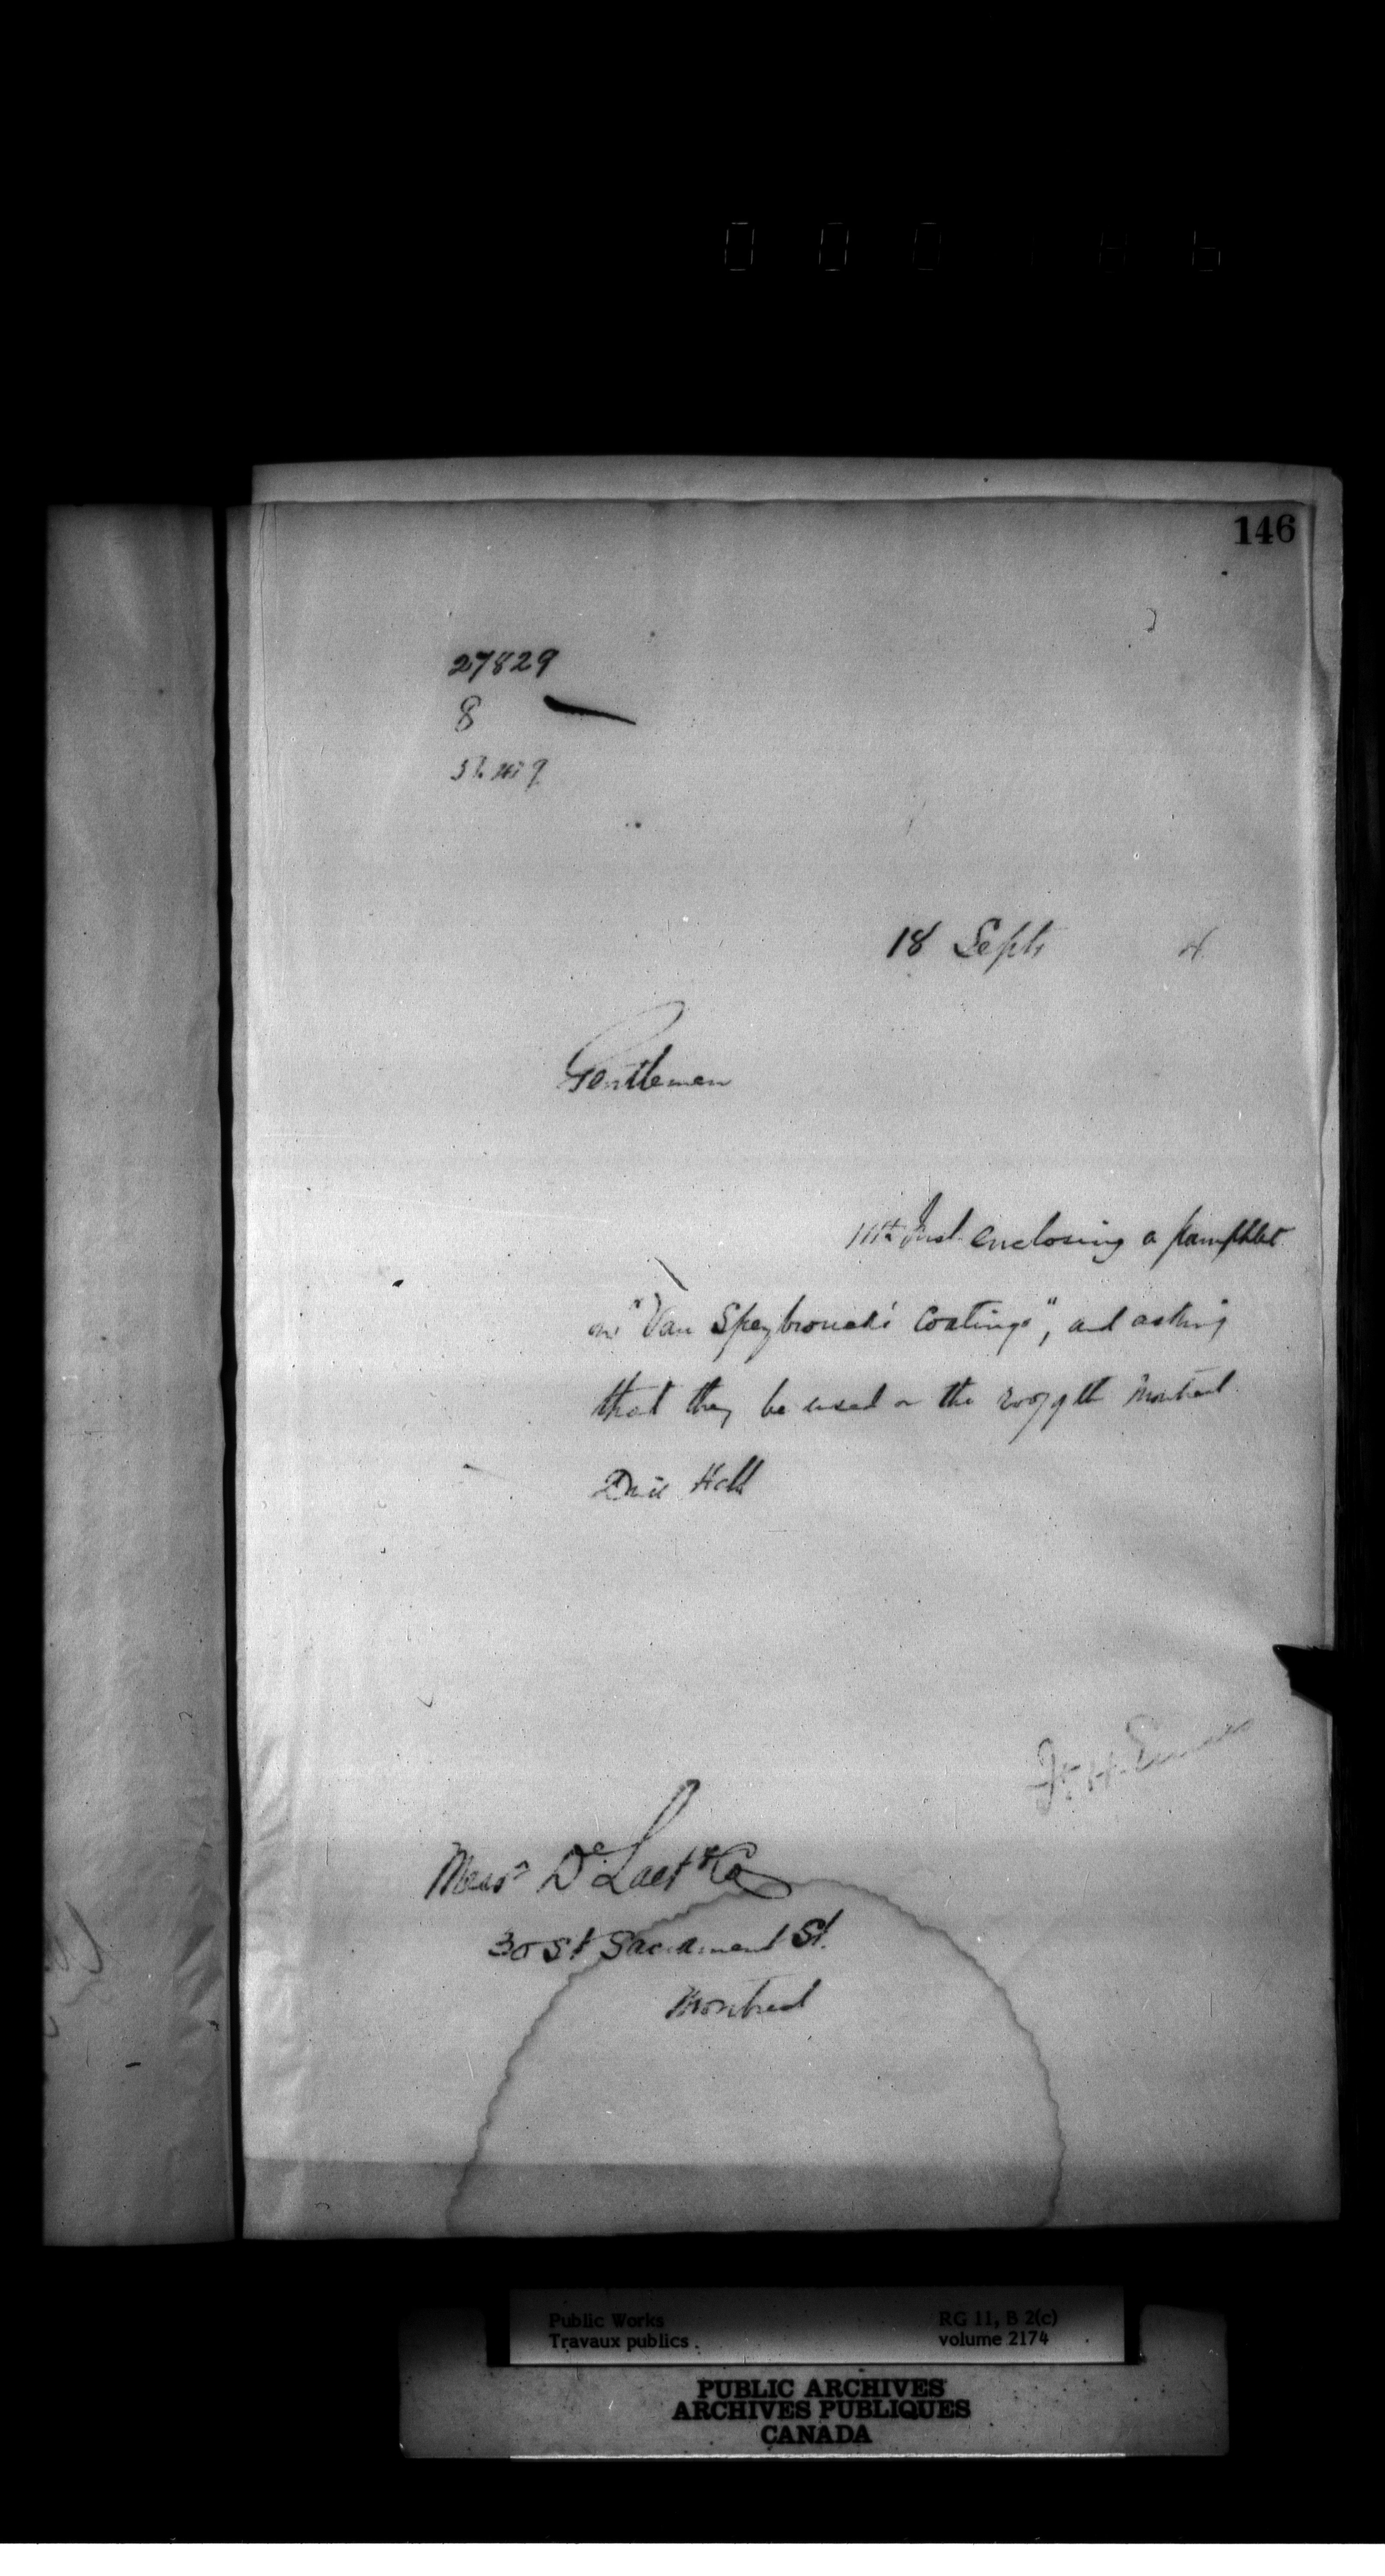 146
27829
8
18 Sept. 4
Gentlemen
11th Inst. enclosing a pamphlet
on "Van Speybrouck's Coatings", and asking
that they be used on the roof of the Montreal
Drill Hall
F. H. Ennis
Messrs De Laet & Co
30 St Sacrament St.
Montreal
Public Works
Travaux publics
RG 11, B 2(c)
volume 2174
PUBLIC ARCHIVES
ARCHIVES PUBLIQUES
CANADA